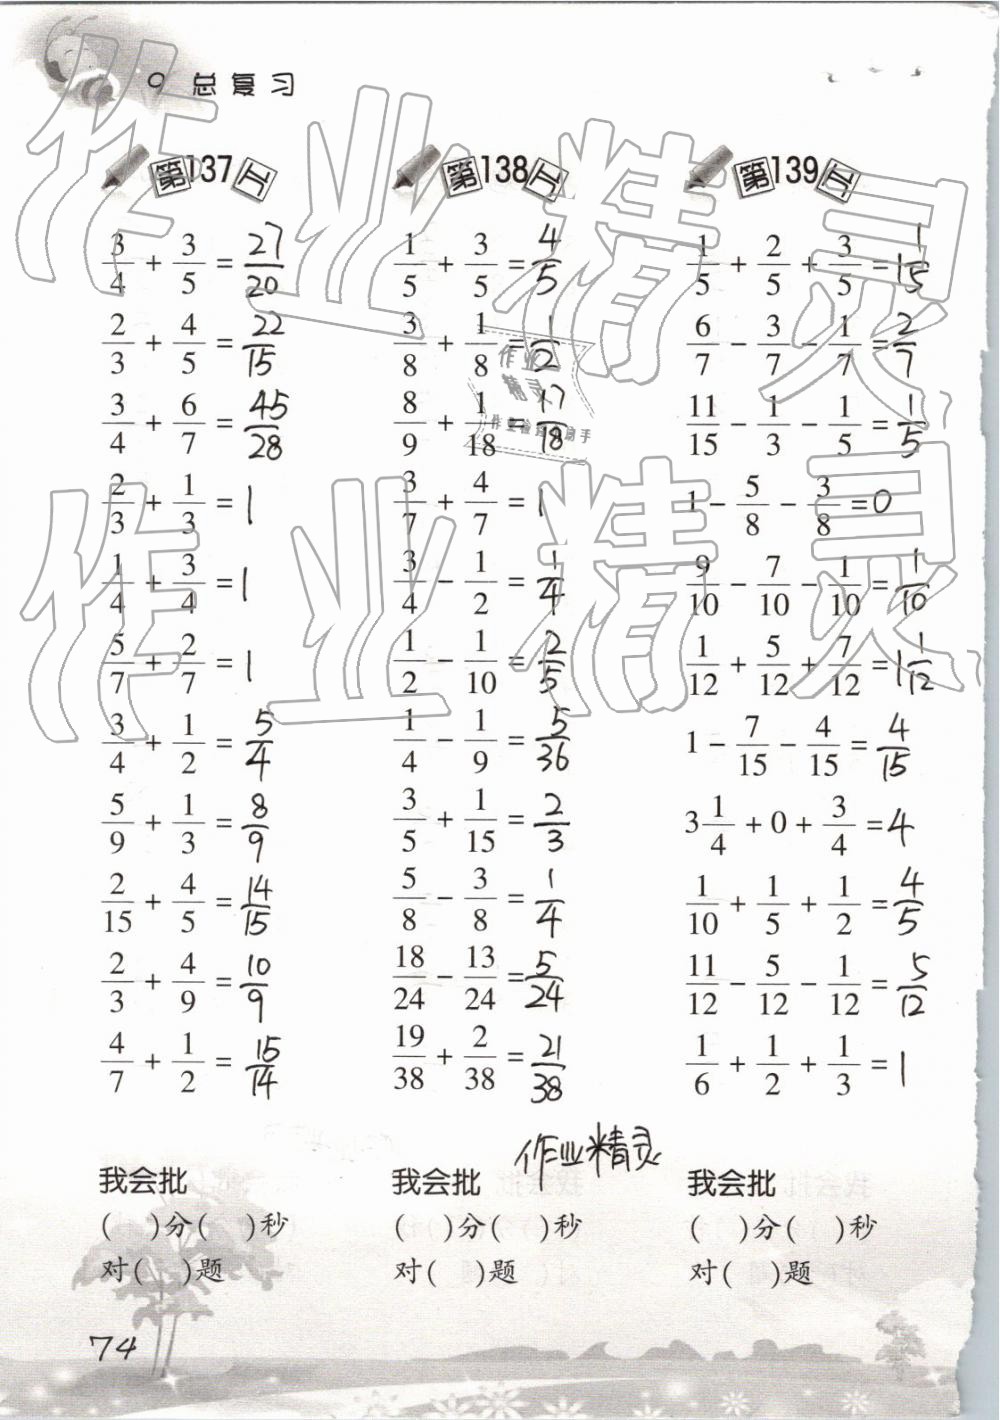 9 总复习
第137页
3/4 + 3/5 = 27/20
2/3 + 4/5 = 22/15
3/4 + 6/7 = 45/28
2/3 + 1/3 = 1
1/4 + 3/4 = 1
5/7 + 2/7 = 1
3/4 + 1/2 = 5/4
5/9 + 1/3 = 8/9
2/15 + 4/5 = 14/15
2/3 + 4/9 = 10/9
4/7 + 1/2 = 15/14
我会批
( )分( )秒
对( )题
第138页
1/5 + 3/5 = 4/5
3/8 + 1/8 = 1/2
8/9 + 1/18 = 17/18
3/7 + 4/7 = 1
3/4 - 1/2 = 1/4
1/2 - 1/10 = 2/5
1/4 - 1/9 = 5/36
3/5 + 1/15 = 2/3
5/8 - 3/8 = 1/4
18/24 - 13/24 = 5/24
19/38 + 2/38 = 21/38
作业精灵
我会批
( )分( )秒
对( )题
第139页
1/5 + 2/5 + 3/5 = 1 1/5
6/7 - 3/7 - 1/7 = 2/7
11/15 - 1/3 - 1/5 = 1/5
1 - 5/8 - 3/8 = 0
9/10 - 7/10 - 1/10 = 1/10
1/12 + 5/12 + 7/12 = 1 1/12
1 - 7/15 - 4/15 = 4/15
3 1/4 + 0 + 3/4 = 4
1/10 + 1/5 + 1/2 = 4/5
11/12 - 5/12 - 1/12 = 5/12
1/6 + 1/2 + 1/3 = 1
我会批
( )分( )秒
对( )题
74
作业精灵
作业精灵
作业
精灵